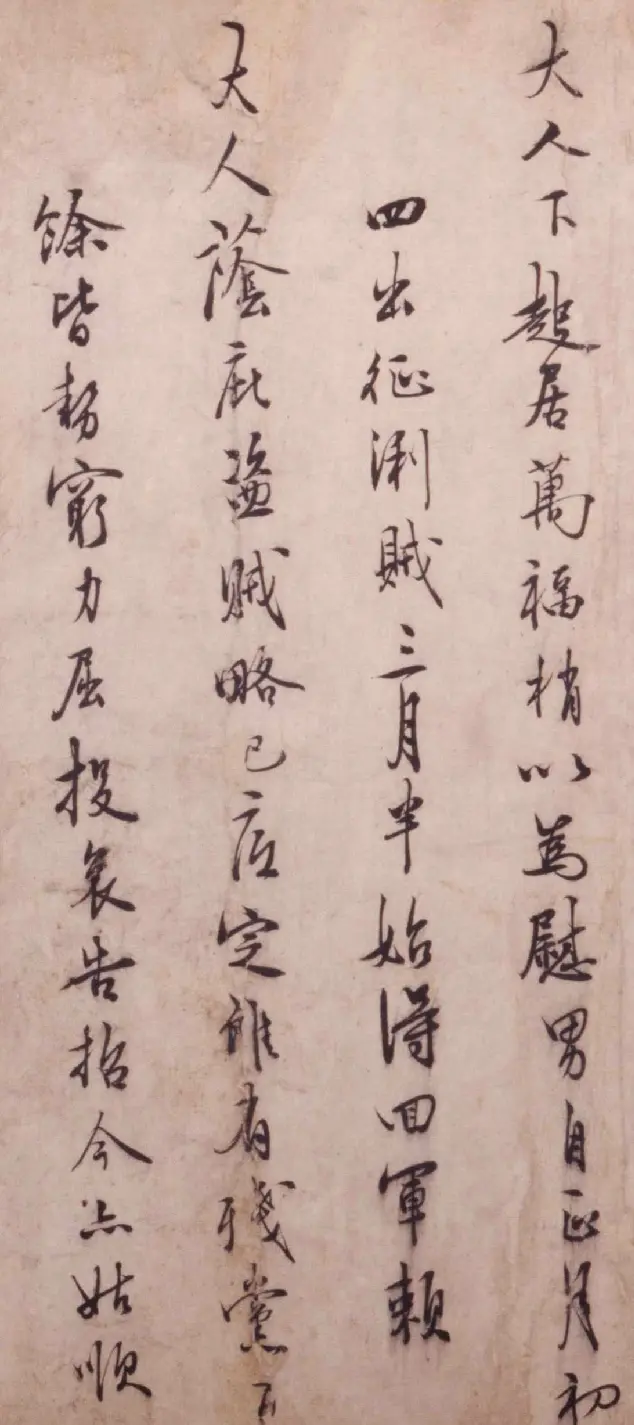 大人下起居萬福稍以為慰男自正月初
四出征浰賊三月半始得回軍賴
大人蔭庇盜賊略已底定雖有殘黨百
餘皆勢窮力屈投哀告招今亦姑順